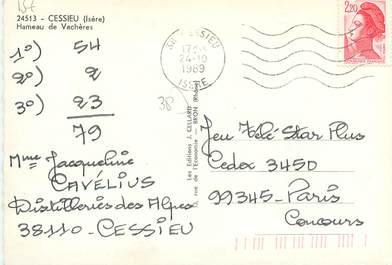 24513 - CESSIEU (Isère)
Hameau de Vachères
1°) 54
2°) 2
3°) 23
79
Mme Jacqueline
CAVÉLIUS
Distilleries des Alpes
38110 - CESSIEU
38 CESSIEU
24-10
1989
ISERE
38
Les Editions J. CELLARD
rue de l'Economie - BRON (Rhône)
2,20
Jeu Télé Star Plus
Cedex 3450
99345 - Paris
Concours